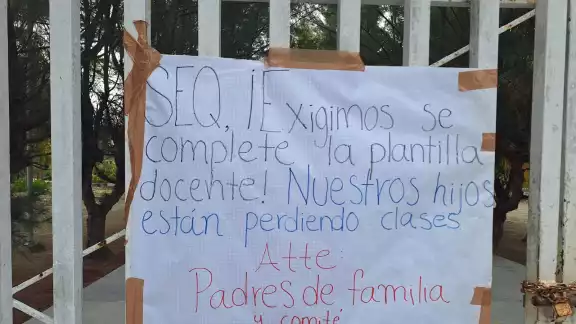 SEQ, ¡Exigimos se
complete la plantilla
docente! Nuestros hijos
están perdiendo clases
Atte:
Padres de familia
y comité